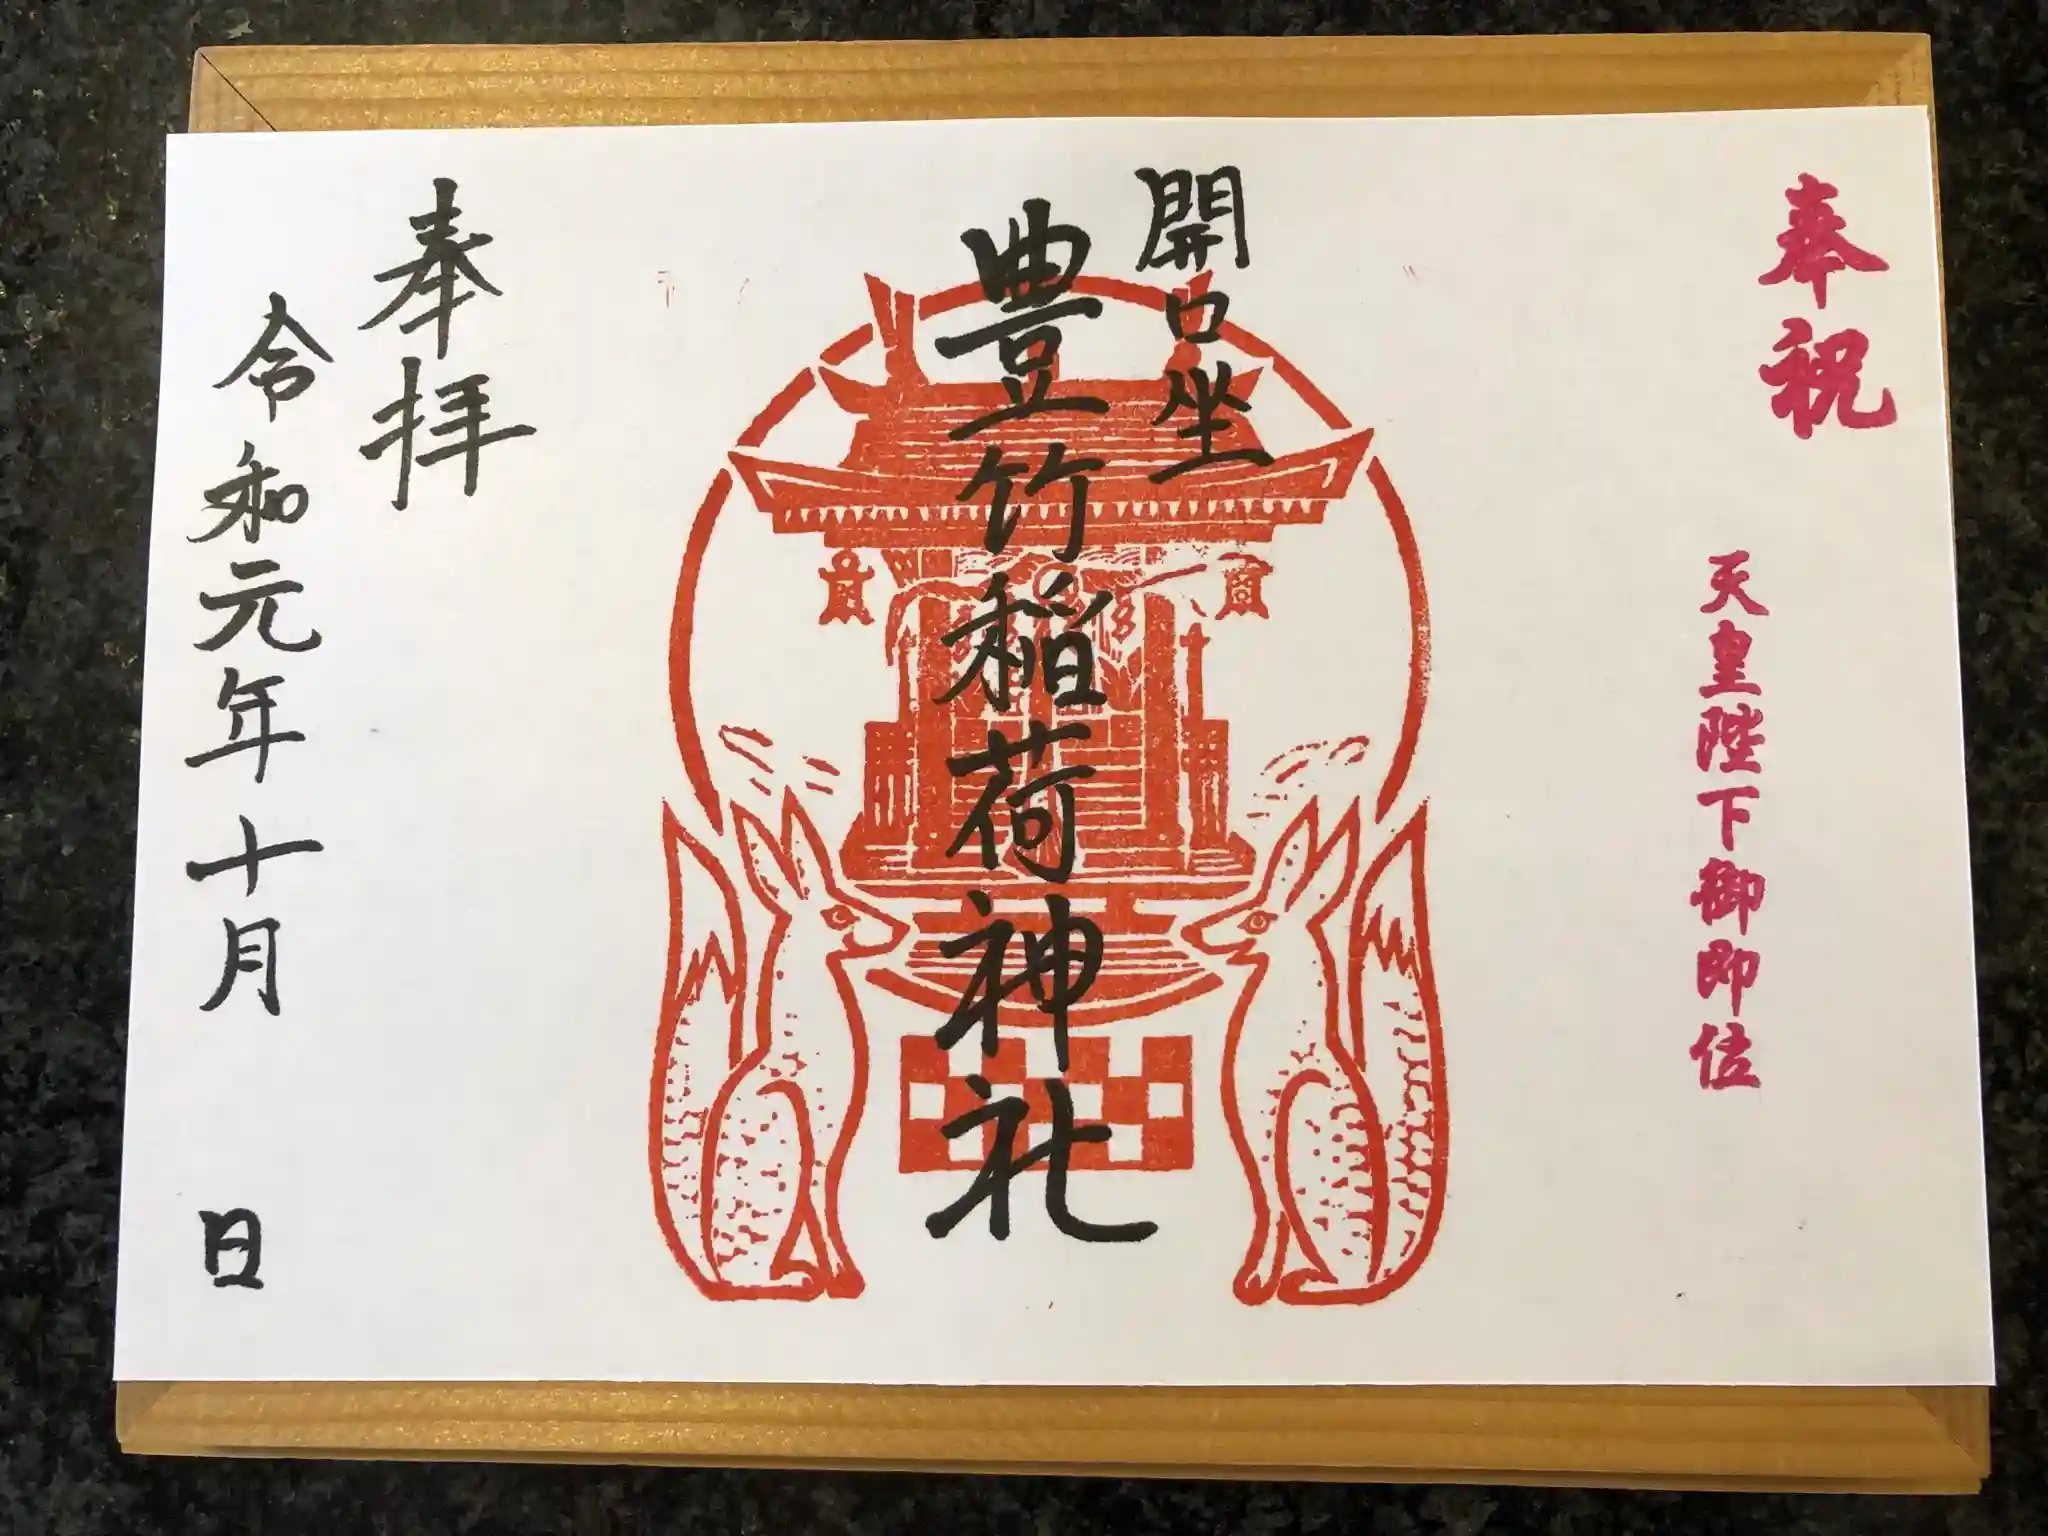 奉祝
天皇陛下御即位
開口坐
豊竹稲荷神社
奉拝
令和元年十月　日